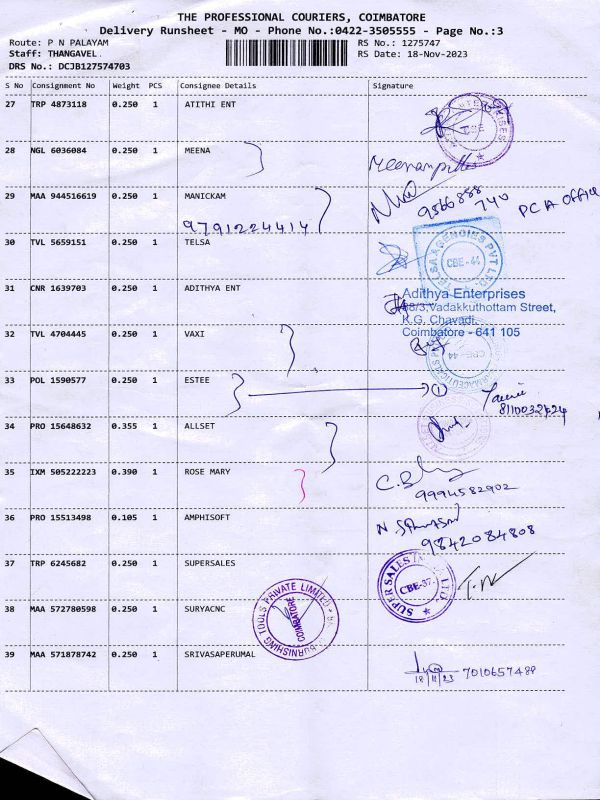 THE PROFESSIONAL COURIERS, COIMBATORE
Delivery Runsheet - MO - Phone No.:0422-3505555 - Page No.:3
Route: P N PALAYAM RS No.: 1275747
Staff: THANGAVEL RS Date: 18-Nov-2023
DRS No.: DCJB127574703
S No Consignment No Weight PCS Consignee Details Signature
27 TRP 4873118 0.250 1 ATITHI ENT
28 NGL 6036084 0.250 1 MEENA
29 MAA 944516619 0.250 1 MANICKAM 9566888740 PCA OFFICE
9791224414
30 TVL 5659151 0.250 1 TELSA
TELSA AGENCIES PVT LTD. CBE-44
31 CNR 1639703 0.250 1 ADITHYA ENT
Adithya Enterprises
Vadakkuthottam Street,
K.G. Chavadi,
Coimbatore - 641 105
32 TVL 4704445 0.250 1 VAXI
CBE-44
33 POL 1590577 0.250 1 ESTEE 1
34 PRO 15648632 0.355 1 ALLSET
35 IXM 505222223 0.390 1 ROSE MARY
9994582902
36 PRO 15513498 0.105 1 AMPHISOFT
9842084808
37 TRP 6245682 0.250 1 SUPERSALES
SUPER SALES LTD. CBE-37
38 MAA 572780598 0.250 1 SURYACNC
BURNISHING TOOLS PRIVATE LIMITED COIMBATORE
39 MAA 571878742 0.250 1 SRIVASAPERUMAL
18/11/23 7010657489